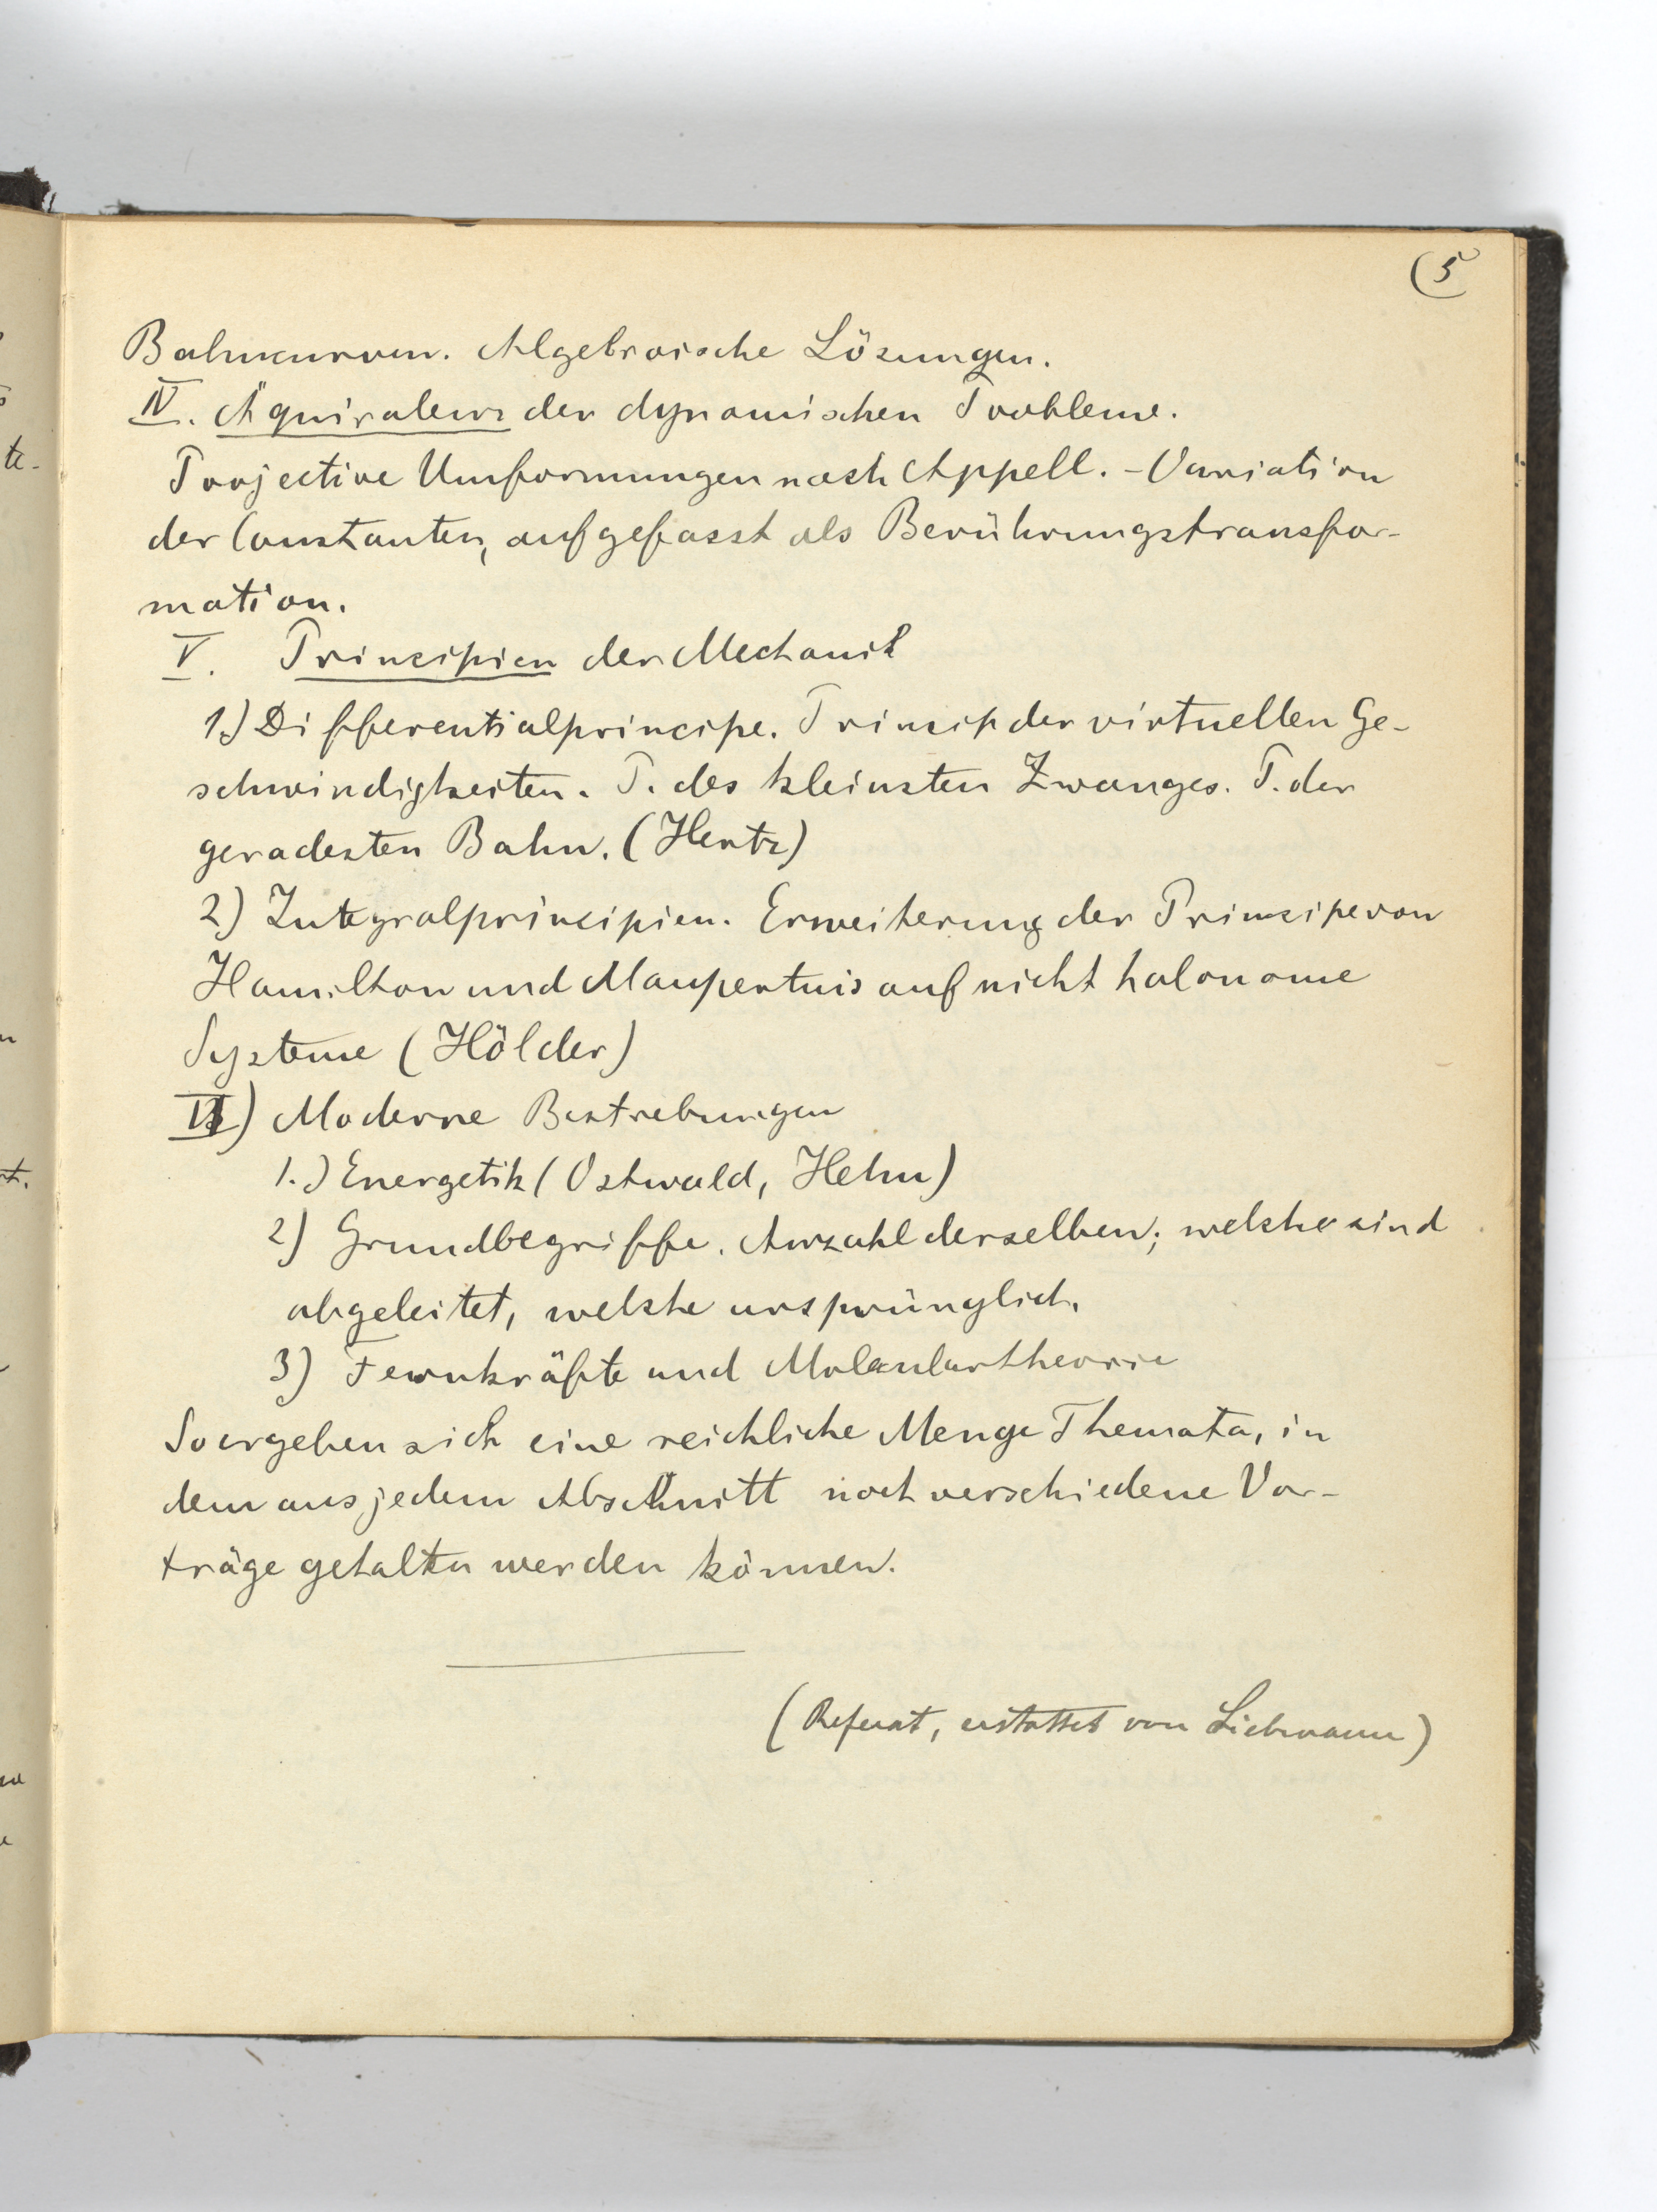 (5
Bahncurven. Algebraische Lösungen.
IV. Äquivalenz der dynamischen Probleme.
Projective Umformungen nach Appell. - Variation
der Constanten, aufgefasst als Berührungstransfor-
mation.
V. Principien der Mechanik
1.) Differentialprincipe. Princip der virtuellen Ge-
schwindigkeiten. P. des kleinsten Zwanges. P. der
geradesten Bahn. (Hertz)
2) Integralprincipien. Erweiterung der Principe von
Hamilton und Maupertuis auf nicht holonome
Systeme (Hölder)
VI) Moderne Bestrebungen
1.) Energetik (Ostwald, Helm)
2) Grundbegriffe. Anzahl derselben; welche sind
abgeleitet, welche ursprünglich.
3) Fernkräfte und Molekulartheorie
So ergeben sich eine reichliche Menge Themata, in
dem aus jedem Abschnitt noch verschiedene Vor-
träge gehalten werden können.
(Referat, erstattet von Liebmann)